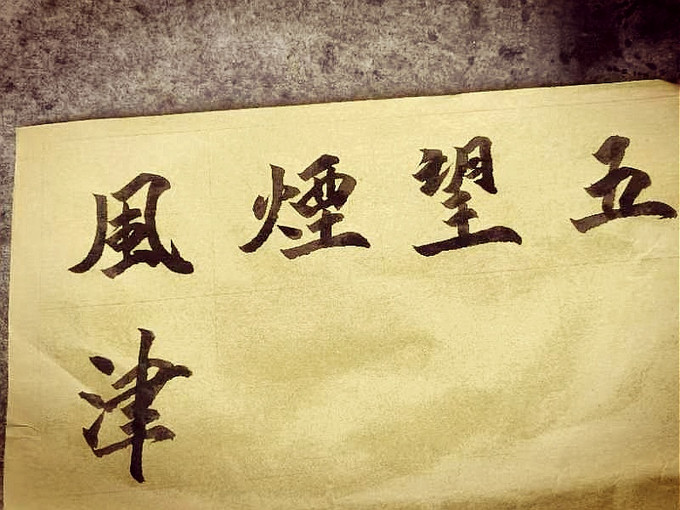 風煙望五
津